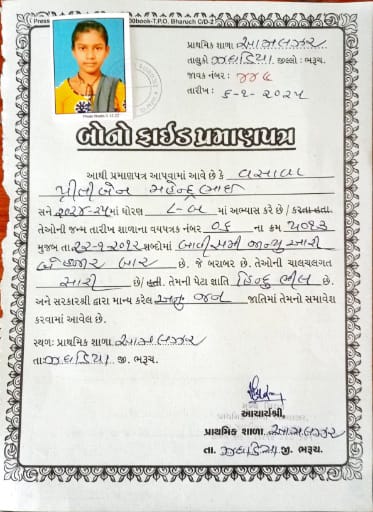 Press 00book-T.P.O. Bharuch G/D-2
પ્રાથમિક શાળા આમલઝર
તાલુકો ઝઘડિયા જીલ્લો : ભરૂચ.
જાવક નંબર : ૪૪૬
તારીખ : ૬-૧-૨૦૨૫
બોનાફાઈડ પ્રમાણપત્ર
આથી પ્રમાણપત્ર આપવામાં આવે છે કે વસાવા
પ્રીતીબેન મહેન્દ્રભાઇ
સને ૨૦૨૪-૨૫માં ધોરણ ૮-બ માં અભ્યાસ કરે છે / કરતા હતા.
તેઓની જન્મ તારીખ શાળાના વયપત્રક નંબર ૦૬ ના ક્રમ ૫૦૧૩
મુજબ તા. ૨૨-૧-૨૦૧૨ શબ્દોમાં બાવીસમી જાન્યુઆરી
બે હજાર બાર છે. જે બરાબર છે. તેઓની ચાલચલગત
સારી છે/હતી. તેમની પેટા જ્ઞાતિ હિન્દુ ભીલ છે.
અને સરકારશ્રી દ્વારા માન્ય કરેલ અનુ જન જાતિમાં તેમનો સમાવેશ
કરવામાં આવેલ છે.
સ્થળ: પ્રાથમિક શાળા આમલઝર
તા: ઝઘડિયા જી. ભરૂચ.
આચાર્યશ્રી,
પ્રાથમિક શાળા આમલઝર
તા. ઝઘડિયા જી. ભરૂચ.